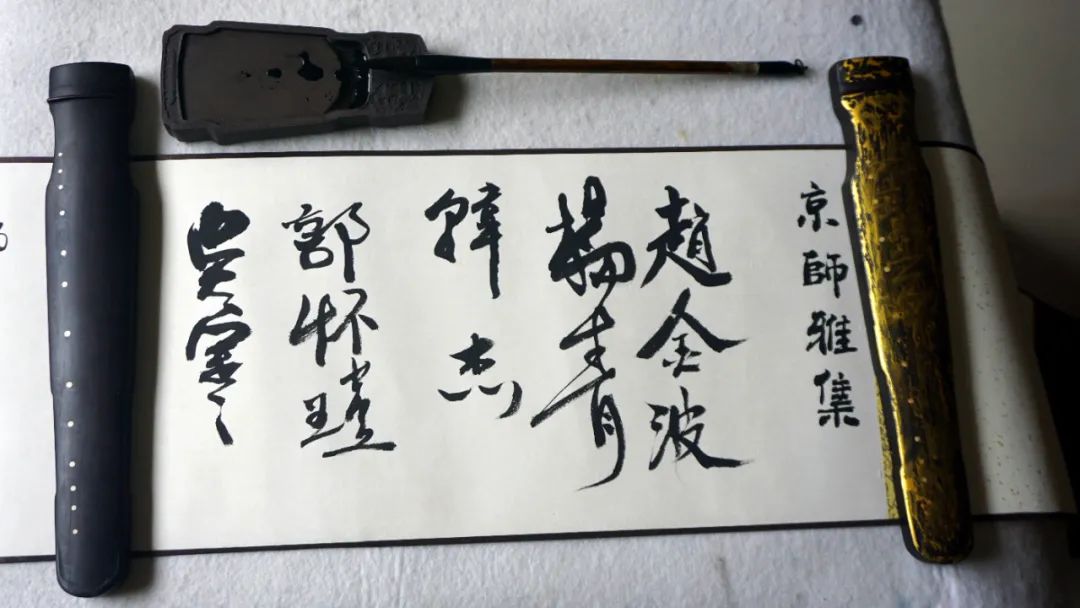 京師雅集
趙金波
楊青
韓杰
郭怀瑭
吴寧